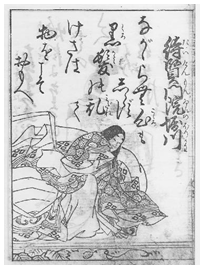 待賢門院堀川
ながからむ心も
しらず
黒髪の乱て
けさは
物をこそ
おもへ